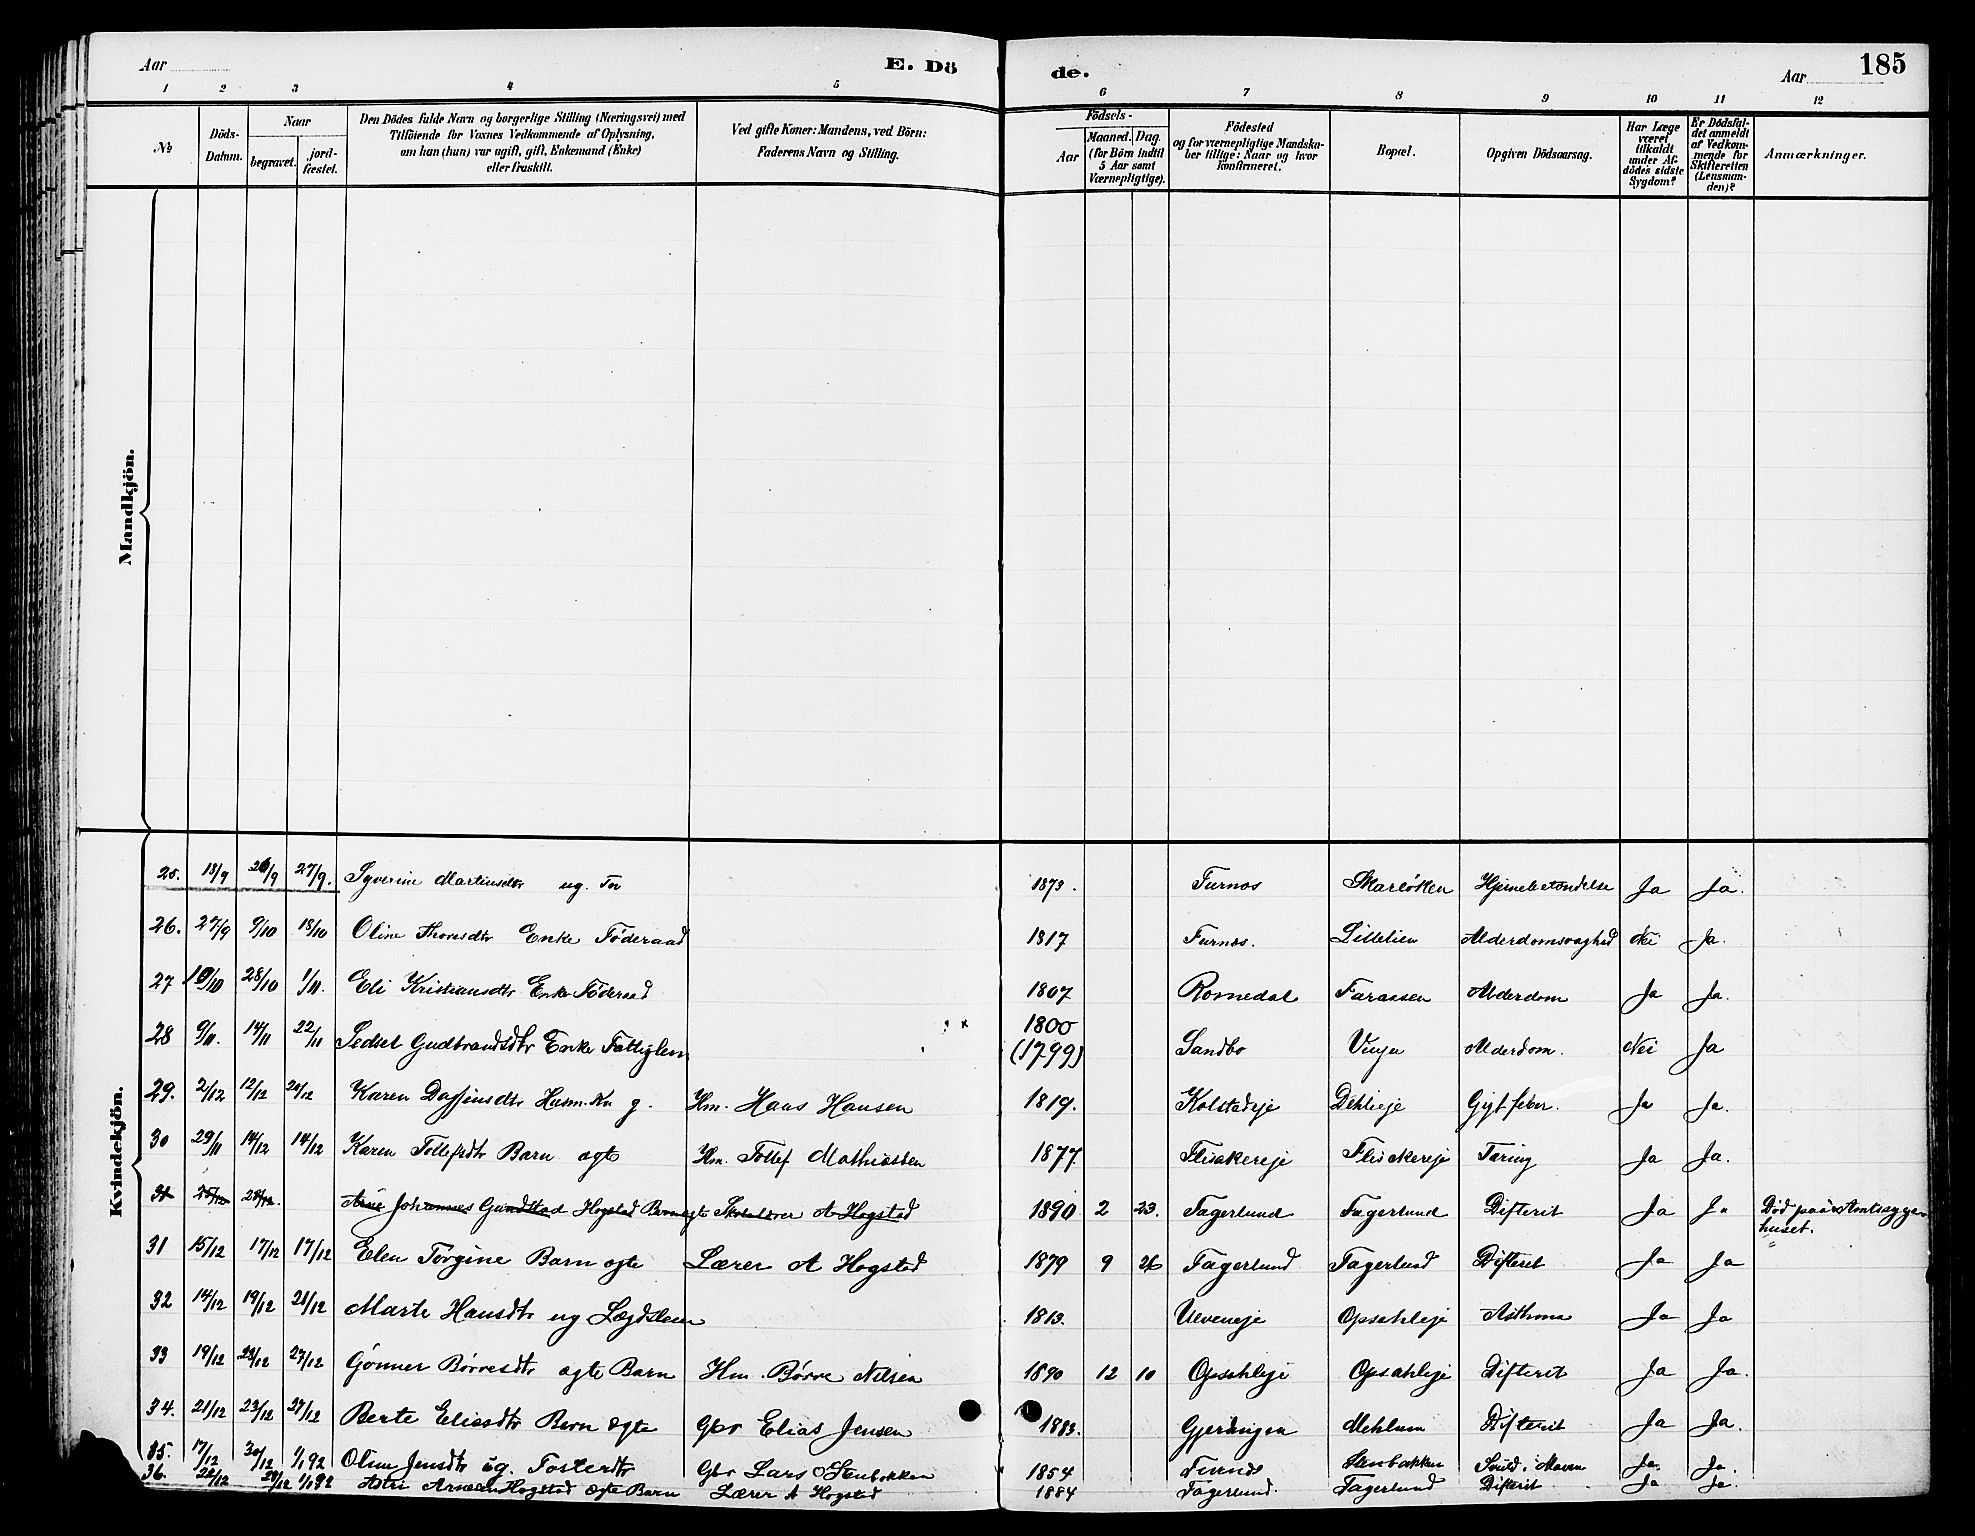 Aar E. Dö de. Aar 185
1 2 3 4 5 6 7 8 9 10 11 12
№
Döds-Datum.
Naar
begravet.
jord-fæstet.
Den Dödes fulde Navn og borgerlige Stilling (Næringsvei) med
Tilföiende for Voxnes Vedkommende af Oplysning,
om han (hun) var ugift, gift, Enkemand (Enke)
eller fraskilt.
Ved gifte Koner: Mandens, ved Börn:
Faderens Navn og Stilling.
Födsels-
Aar
Maaned. Dag.
(for Börn indtil
5 Aar samt
Værnepligtige).
Födested
og for værnepligtige Mandska-
ber tillige: Naar og hvor
konfirmeret.
Bopæl.
Opgiven Dödsaarsag.
Har Læge
været
tilkaldt
under Af-
dödes sidste
Sygdom?
Er Dödsfal-
det anmeldt
af Vedkom-
mende for
Skifteretten
(Lensman-
den)?
Anmærkninger.
Mandkjön.
Kvindekjön.
25. 18/9 26/9 27/9. Syverine Martinsdtr ug. 1873. Furnæs Hjernebetændelse Ja Ja.
26. 27/9 9/10 18/10 Oline Thoresdtr Enke Føderaad 1817 Furnæs. Lillelien Alderdomssvaghed Nei Ja.
27 10/10 28/10 1/11. Eli Kristiansdtr Enke Føderaad 1807 Romedal Faraasen Alderdom Ja Ja.
28 9/11. 14/11 22/11 Sedsel Gudbrandsdtr Enke Fattiglem 1800 (1799) Sandbo Alderdom. Nei Ja
29. 2/12 12/12 20/12 Karen Daffinsdtr Husm. Kn g. Hm. Haas Hansen 1819. Kolstadeje Dehlieje Gigtfeber. Ja Ja.
30 29/11 14/12 14/12 Karen Tollefsdtr Barn ægte Hm. Tollef Mathiassen 1877. Flisakereje Flisakereje Tæring Ja Ja.
31 25/12 28/12. Arne Johannes Gundstad Hogstad Barn ægte Skolelærer A Hogstad 1890 2 23. Fagerlund Fagerlund Difterit Ja Ja Død paa Amtssyge-
huset.
31 15/12 17/12 17/12 Elen Jørgine Barn ægte Lærer A Hogstad 1879 9 26 Fagerlund Fagerlund Difterit Ja Ja
32 14/12 19/12 21/12 Marte Hansdtr ug Lægdslem 1813. Ulveneje Opsahleje Asthma Ja Ja
33 19/12 23/12 27/12 Gønner Børresdtr ægte Barn Hm. Børre Nilsen 1890 12 10 Opsahleje Opsahleje Difterit Ja Ja.
34. 21/12 23/12 27/12 Berte Eliasdtr Barn ægte Gbr Elias Jensen 1883. Gjerdingen Mehlum Difterit Ja Ja.
35. 17/12 30/12 1/1 92 Oline Jensdtr ug. Fosterdtr Gbr Lars Stenbakken 1854 Furnæs Stenbakken Svuld i Maven Ja. Ja.
36. 22/12 29/12 1/1 92 Astri Arnesen Hogstad ægte Barn Lærer A Hogstad 1884 Fagerlund. Fagerlund Difterit Ja Ja.